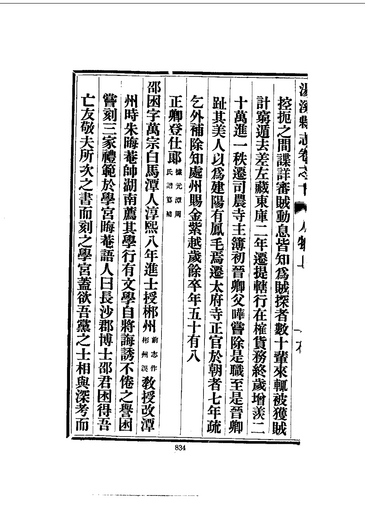 湯溪縣志卷之十 人物上
控扼之間諜詳審賊動息皆知爲賊探者數十輩來輒被獲賊
計窮遁去差左藏東庫二年遷提轄行在榷貨務終歲增羨二
十萬進一秩遷司農寺主簿初晉卿父曄嘗除是職至是晉卿
趾其美人以爲建陽有鳳毛焉遷太府寺正官於朝者七年疏
乞外補除知處州賜金紫越歲餘卒年五十有八
正卿登仕郎
邵困字萬宗白馬潭人淳熙八年進士授郴州前志作彬州誤教授改潭
州時朱晦菴帥湖南薦其學行有文學自將誨誘不倦之譽困
嘗刻三家禮範於學宮晦菴語人曰長沙郡博士邵君困得吾
亡友敬夫所次之書而刻之學宮蓋欲吾黨之士相與深考而
834